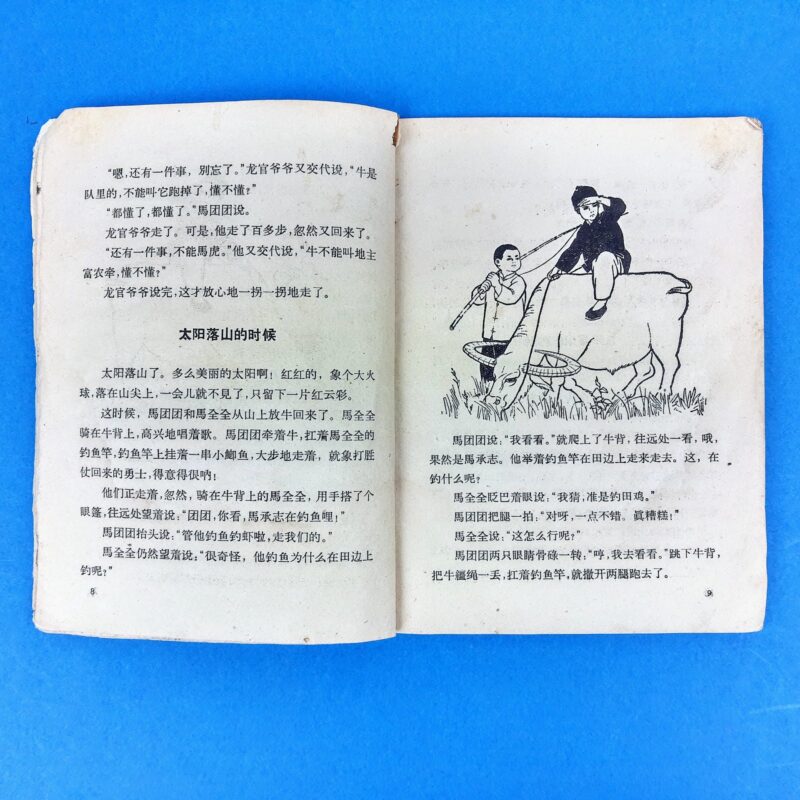 “嗯，还有一件事，別忘了。”龙官爷爷又交代说，“牛是
队里的，不能叫它跑掉了，懂不懂？”
“都懂了，都懂了。”馬团团说。
龙官爷爷走了。可是，他走了百多步，忽然又回来了。
“还有一件事，不能馬虎。”他又交代说，“牛不能叫地主
富农牵，懂不懂？”
龙官爷爷说完，这才放心地一拐一拐地走了。
太阳落山的时候
太阳落山了。多么美丽的太阳啊！红红的，象个大火
球，落在山尖上，一会儿就不見了，只留下一片红云彩。
这时候，馬团团和馬全全从山上放牛回来了。馬全全
騎在牛背上，高兴地唱着歌。馬团团牵着牛，扛着馬全全的
钓魚竿，钓魚竿上挂着一串小鲫魚，大步地走着，就象打胜
仗回来的勇士，得意得很吶！
他们正走着，忽然，騎在牛背上的馬全全，用手搭了个
眼篷，往远处望着说：“团团，你看，馬承志在钓魚哩！”
馬团团抬头说：“管他钓魚钓虾啦，走我们的。”
馬全全仍然望着说：“很奇怪，他钓魚为什么在田边上
钓呢？”
8
馬团团说：“我看看。”就爬上了牛背，往远处一看，哦，
果然是馬承志。他举着钓魚竿在田边上走来走去。这，在
钓什么呢？
馬全全眨巴着眼说：“我猜，准是钓田鸡。”
馬团团把腿一拍：“对呀，一点不错。眞糟糕！”
馬全全说：“这怎么行呢？”
馬团团两只眼睛骨碌一转：“哼，我去看看。”跳下牛背，
把牛繮绳一丢，扛着钓魚竿，就撒开两腿跑去了。
9